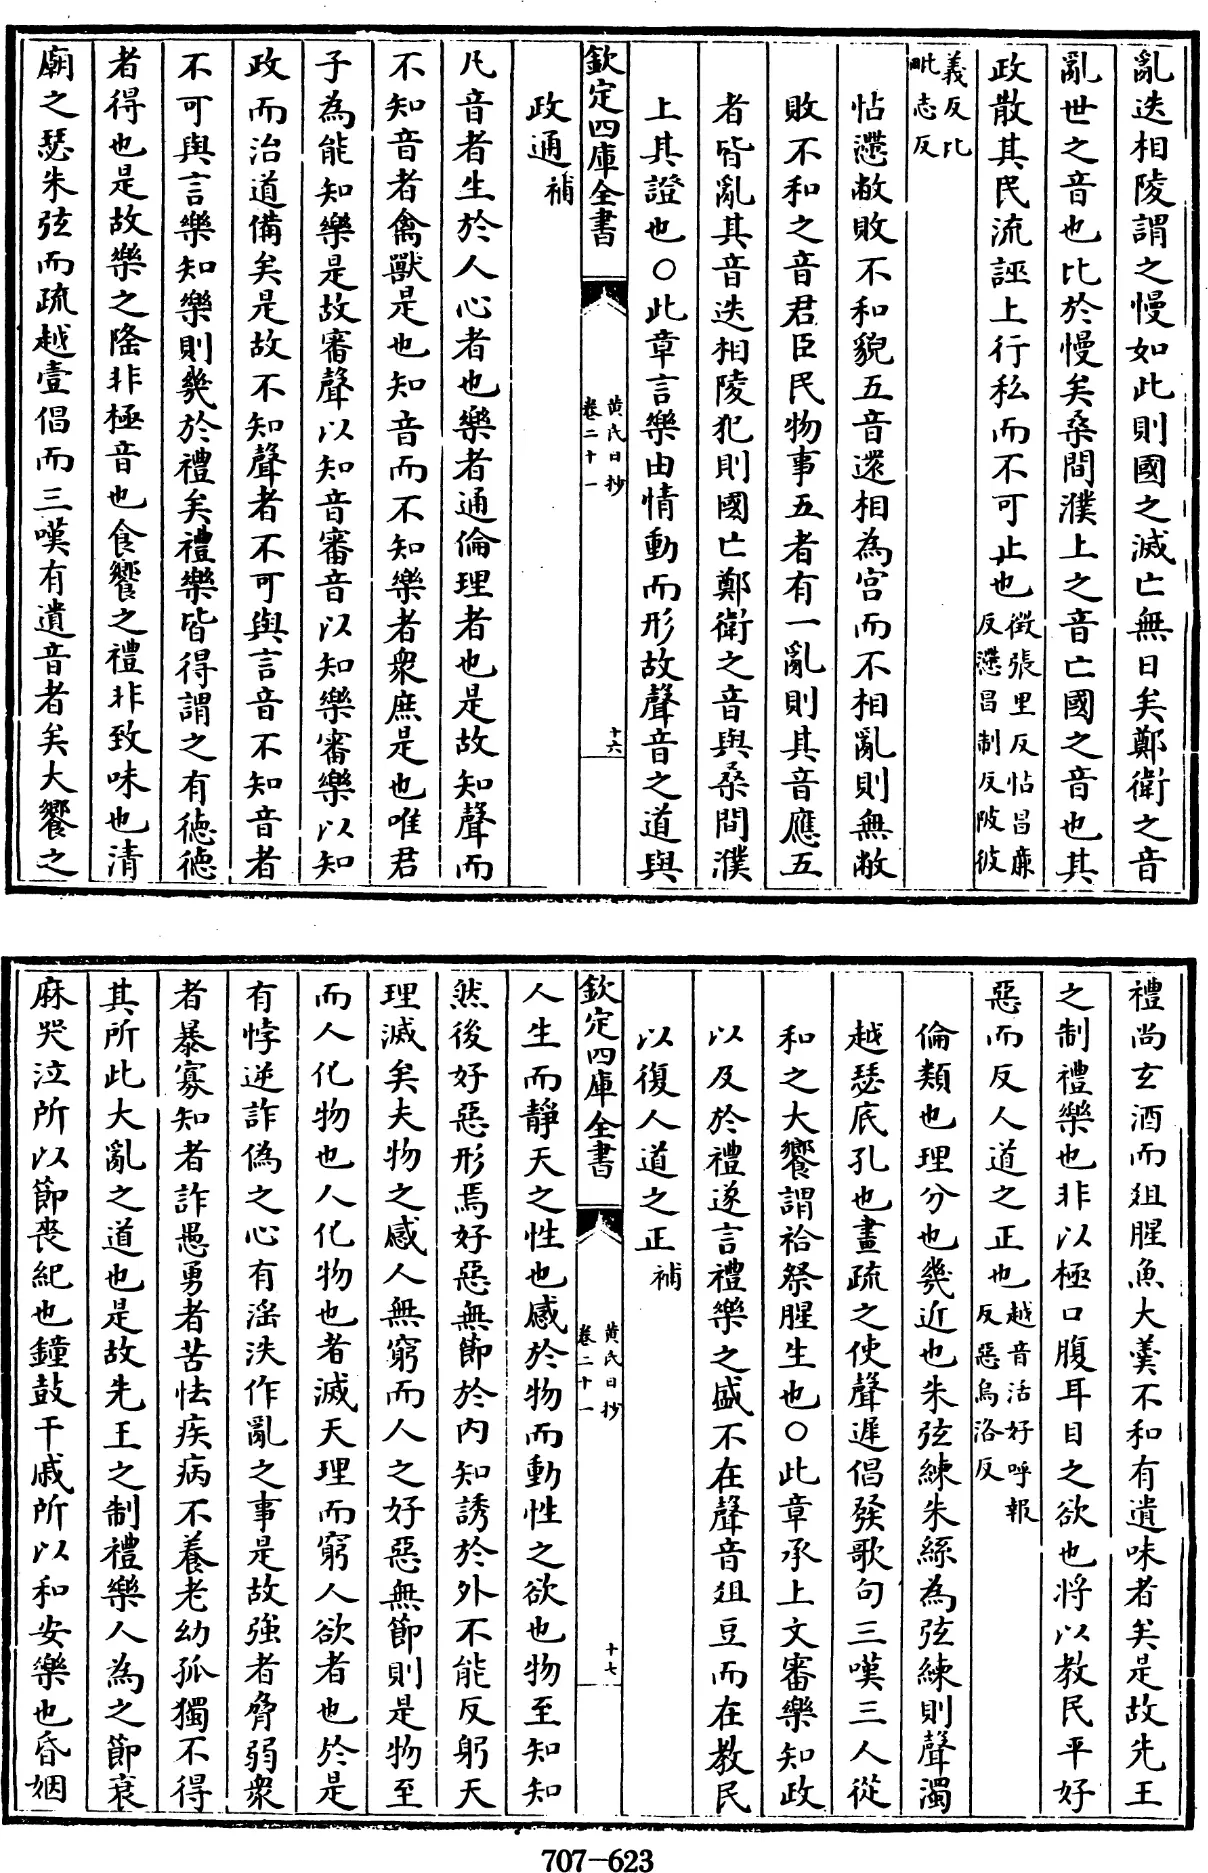 亂迭相陵謂之慢如此則國之滅亡無日矣鄭衛之音
亂世之音也比於慢矣桑間濮上之音亡國之音也其
政散其民流誣上行私而不可止也徵張里反怗昌廉反懘昌制反陂彼
義反比毗志反
怗懘敝敗不和貌五音還相為宫而不相亂則無敝
敗不和之音君臣民物事五者有一亂則其音應五
者皆亂其音迭相陵犯則國亡鄭衛之音與桑間濮
上其證也○此章言樂由情動而形故聲音之道與
欽定四庫全書
黄氏日抄
卷二十一
十六
政通補
凡音者生於人心者也樂者通倫理者也是故知聲而
不知音者禽獸是也知音而不知樂者衆庶是也唯君
子為能知樂是故審聲以知音審音以知樂審樂以知
政而治道備矣是故不知聲者不可與言音不知音者
不可與言樂知樂則幾於禮矣禮樂皆得謂之有德德
者得也是故樂之隆非極音也食饗之禮非致味也清
廟之瑟朱弦而疏越壹倡而三嘆有遺音者矣大饗之
禮尚玄酒而俎腥魚大羹不和有遺味者矣是故先王
之制禮樂也非以極口腹耳目之欲也將以教民平好
惡而反人道之正也越音活好呼報反惡烏洛反
倫類也理分也幾近也朱弦練朱絲為弦練則聲濁
越瑟底孔也畫疏之使聲遲倡發歌句三嘆三人從
和之大饗謂祫祭腥生也○此章承上文審樂知政
以及於禮遂言禮樂之盛不在聲音俎豆而在教民
以復人道之正補
欽定四庫全書
黄氏日抄
卷二十一
十七
人生而靜天之性也感於物而動性之欲也物至知知
然後好惡形焉好惡無節於内知誘於外不能反躬天
理滅矣夫物之感人無窮而人之好惡無節則是物至
而人化物也人化物也者滅天理而窮人欲者也於是
有悖逆詐偽之心有滛泆作亂之事是故強者脅弱衆
者暴寡知者詐愚勇者苦怯疾病不養老幼孤獨不得
其所此大亂之道也是故先王之制禮樂人為之節衰
麻哭泣所以節喪紀也鐘鼓干戚所以和安樂也昏姻
707-623